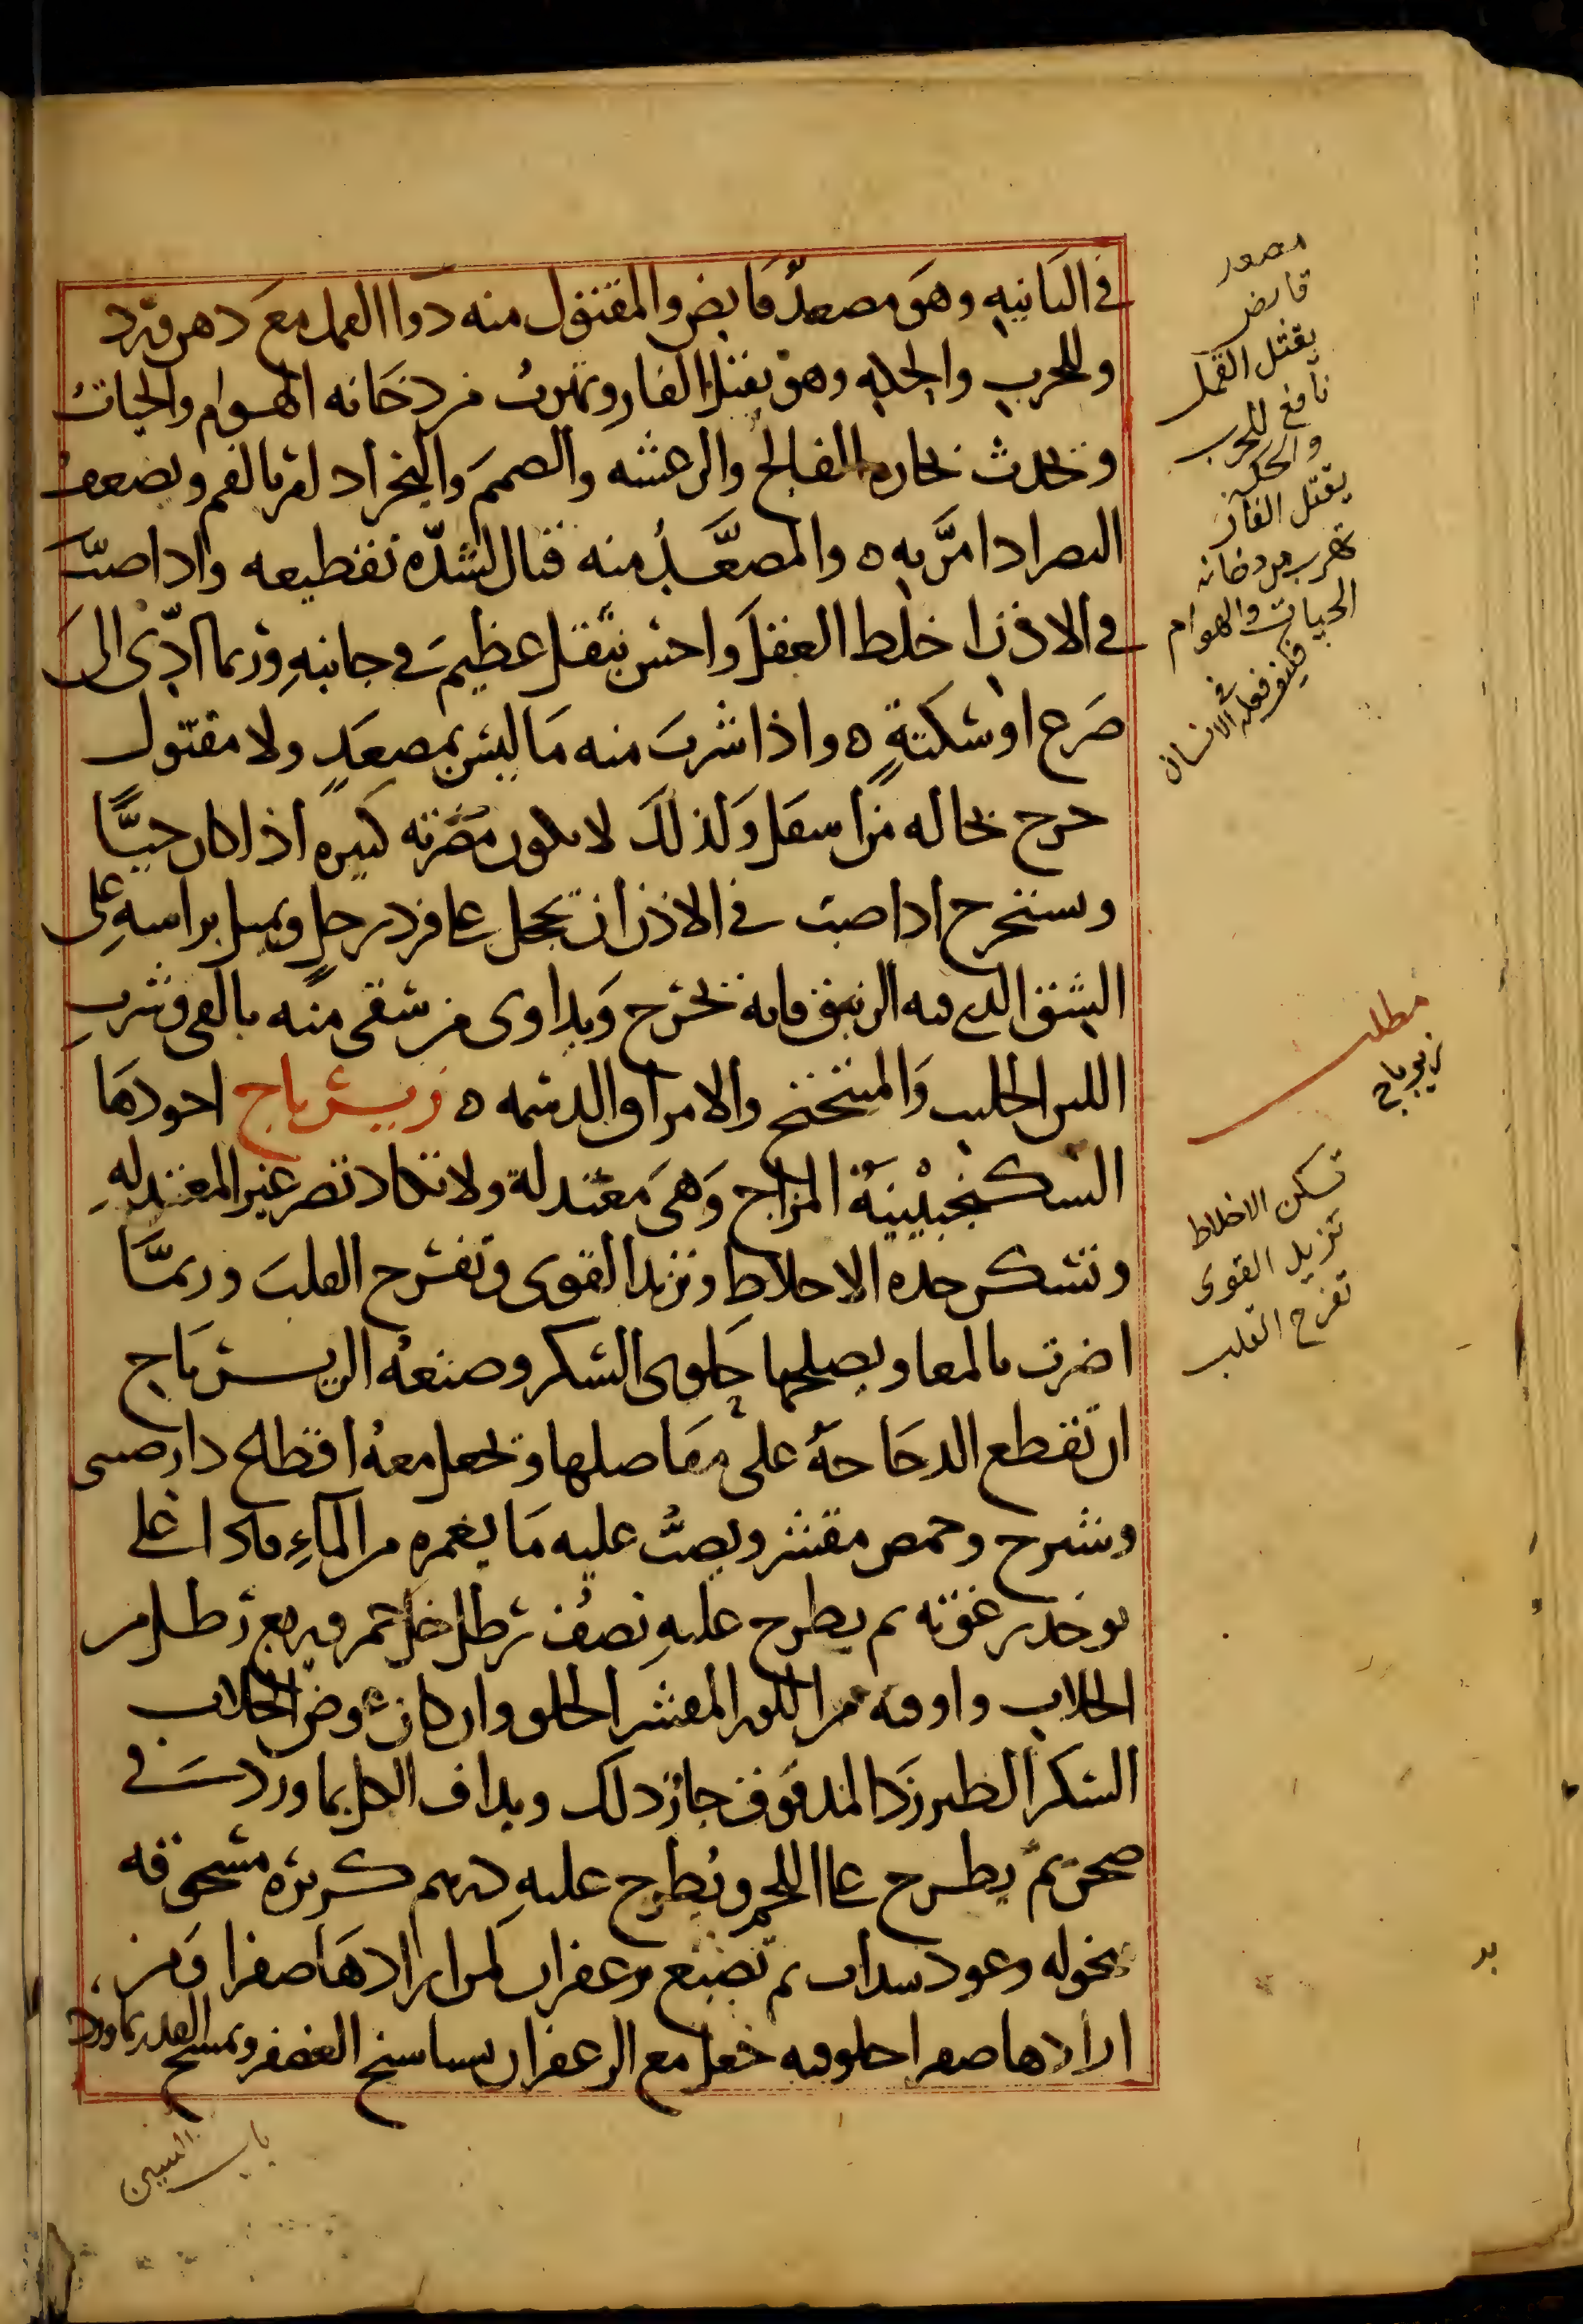 في الثانيه وهو مصعد قابض والمقتول منه دوا القمل مع دهن ورد
وللجرب والحكه وهو يقتل الفار وتهرب من دخانه الهوام والحيات
ويحدث بخاره الفالج والرعشه والصمم والبخر اد لقر بالفم ويضعف
البصر ادا مر به ه والمصعد منه قتال لشده تقطيعه وادا صب
في الاذن اخلط العقل واحس بثقل عظيم في جانبه وربما ادى الى
صرع او سكتة ه واذا شرب منه ما ليس بمصعد ولا مقتول
خرج بحاله من اسفل ولذلك لا يكون مضرته كبيره اذا كان حيا
ويستخرج ادا صب في الاذن ان تحجل على فرد رجل ويميل براسه على
الشق الدى فيه الزيبق فانه يخرج ويداوى من سقى منه بالقى وشرب
اللبن الحليب والامراق الدسمه ه زيرباج اجودها
السكنجبينية المزاج وهى معتدلة ولا تكاد تضر غير المعتدله
وتسكن حده الاخلاط وتزيد القوى وتفرح القلب وربما
اضرت بالمعا ويصلحها حلوى السكر وصنعه الزيرباج
ان تقطع الدجاجة على مفاصلها وتجعل معه اقطاع دارصينى
وشيرج وحمص مقشر ويصب عليه ما يغمره من الماء فاذا اغلى
يوخد رغوته ثم يطرح عليه نصف رطل خل خمر وربع رطل من
الجلاب واوقيه من اللوز المقشر الحلو وان كان عوض الجلاب
السكر الطبرزد المدقوق جاز دلك ويداف الكل بماورد في
صحن ثم يطرح على اللحم ويطرح عليه درهم كزبره مسحوقه
منخوله وعود سداب ثم تصبغ بزعفران لمن ارادها صفرا ومن
ارادها صفرا جعل مع الزعفران ويمسح القدر بماورد
مصعد
قابض
يقتل القمل
نافع للجرب
والحكه
يقتل الفار
تهرب من دخانه
الحيات والهوام
فكيف فعله في الانسان
مطلب
زيرباج
تسكن الاخلاط
تزيد القوى
تفرح القلب
باب السين